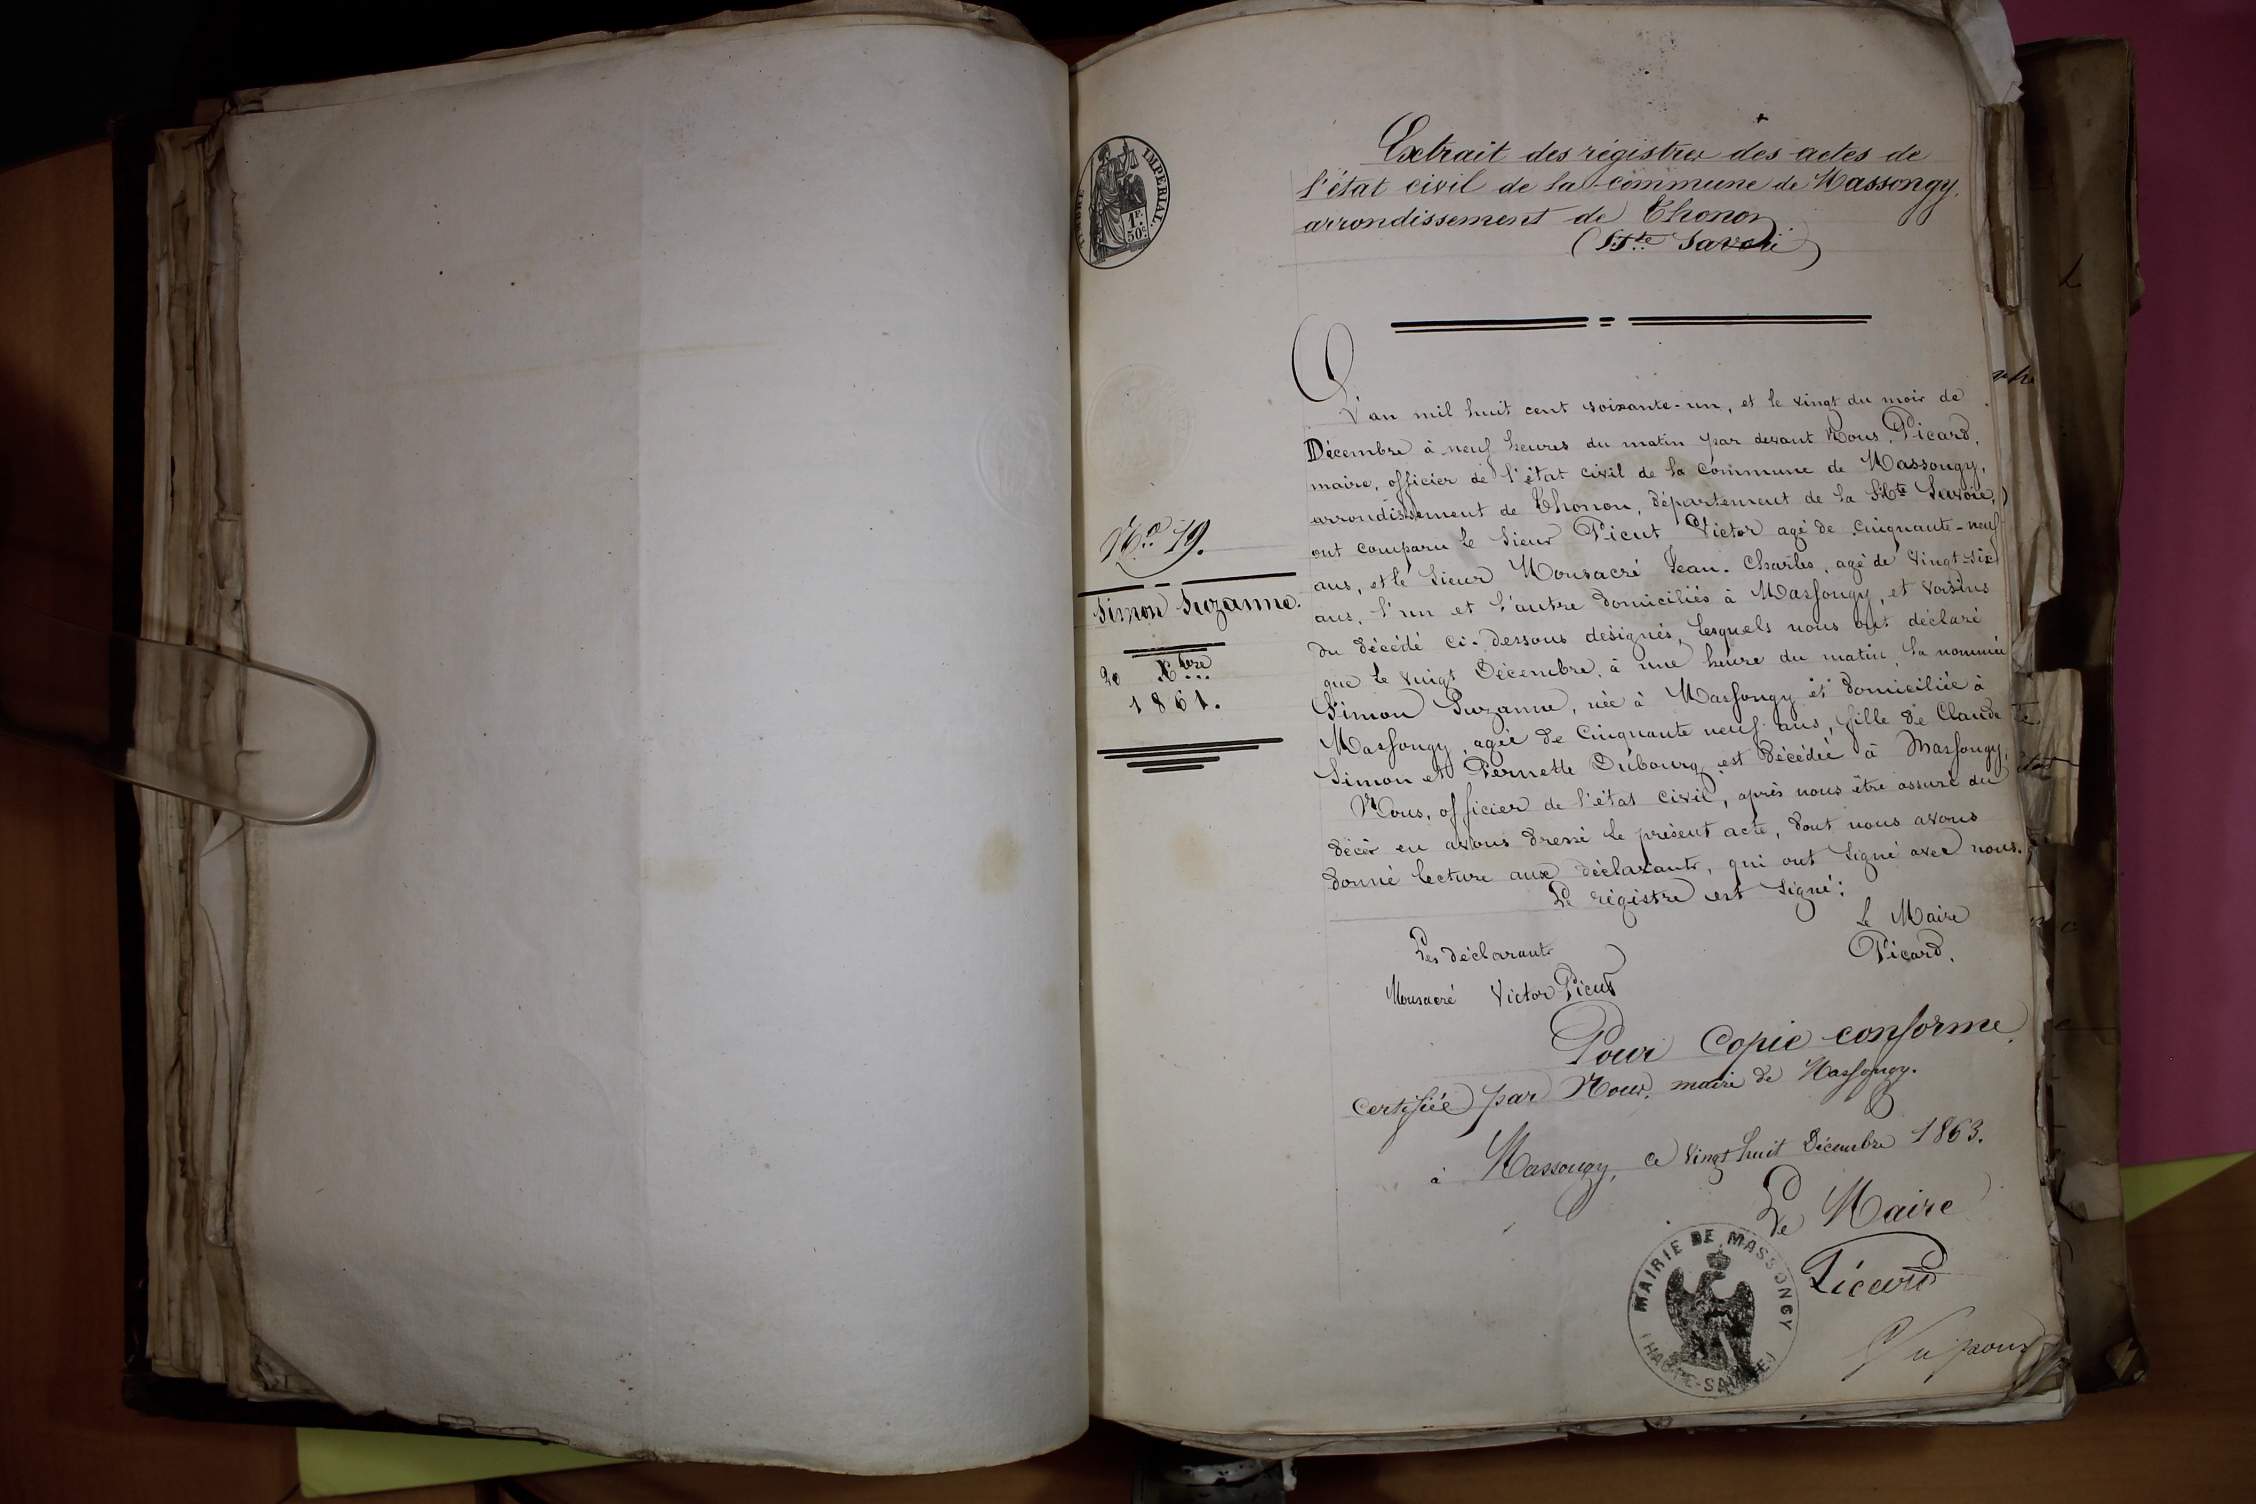 Extrait des régistres des actes de
l'état civil de la commune de Massongy,
arrondissement de Thonon
(Hte Savoie)
TIMBRE IMPERIAL.
1F.
50c.
L'an mil huit cent soixante-un, et le vingt du mois de
Décembre à neuf heures du matin par devant Nous, Picard,
maire, officier de l'état civil de la commune de Massongy,
arrondissement de Thonon, département de la Hte Savoie,
ont comparu le Sieur Picut Victor agé de cinquante-neuf
ans, et le Sieur Mousacré Jean-Charles, agé de vingt-six
ans, l'un et l'autre domiciliés à Massongy, et voisins
du décédé ci-dessous désignés, lesquels nous ont déclaré
que le vingt Décembre, à une heure du matin, la nommée
Simon Suzanne, née à Massongy et domiciliée à
Massongy, agée de cinquante neuf ans, fille de Claude
Simon et Pernette Dubourg est décédée à Massongy,
Nous, officier de l'état civil, après nous être assuré du
décès en avons dressé le présent acte, dont nous avons
donné lecture aux déclarants, qui ont signé avec nous.
Le régistre est signé:
No 19.
Simon Suzanne.
20 Xbre
1861.
Le Maire
Les déclarants
Picard,
Mousacré Victor Picut
Pour Copie conforme,
Certifiée par Nous, maire de Massongy.
à Massongy, ce vingt huit Décembre 1863.
Le Maire
Picard
MAIRIE DE MASSONGY
(HAUTE-SAVOIE)